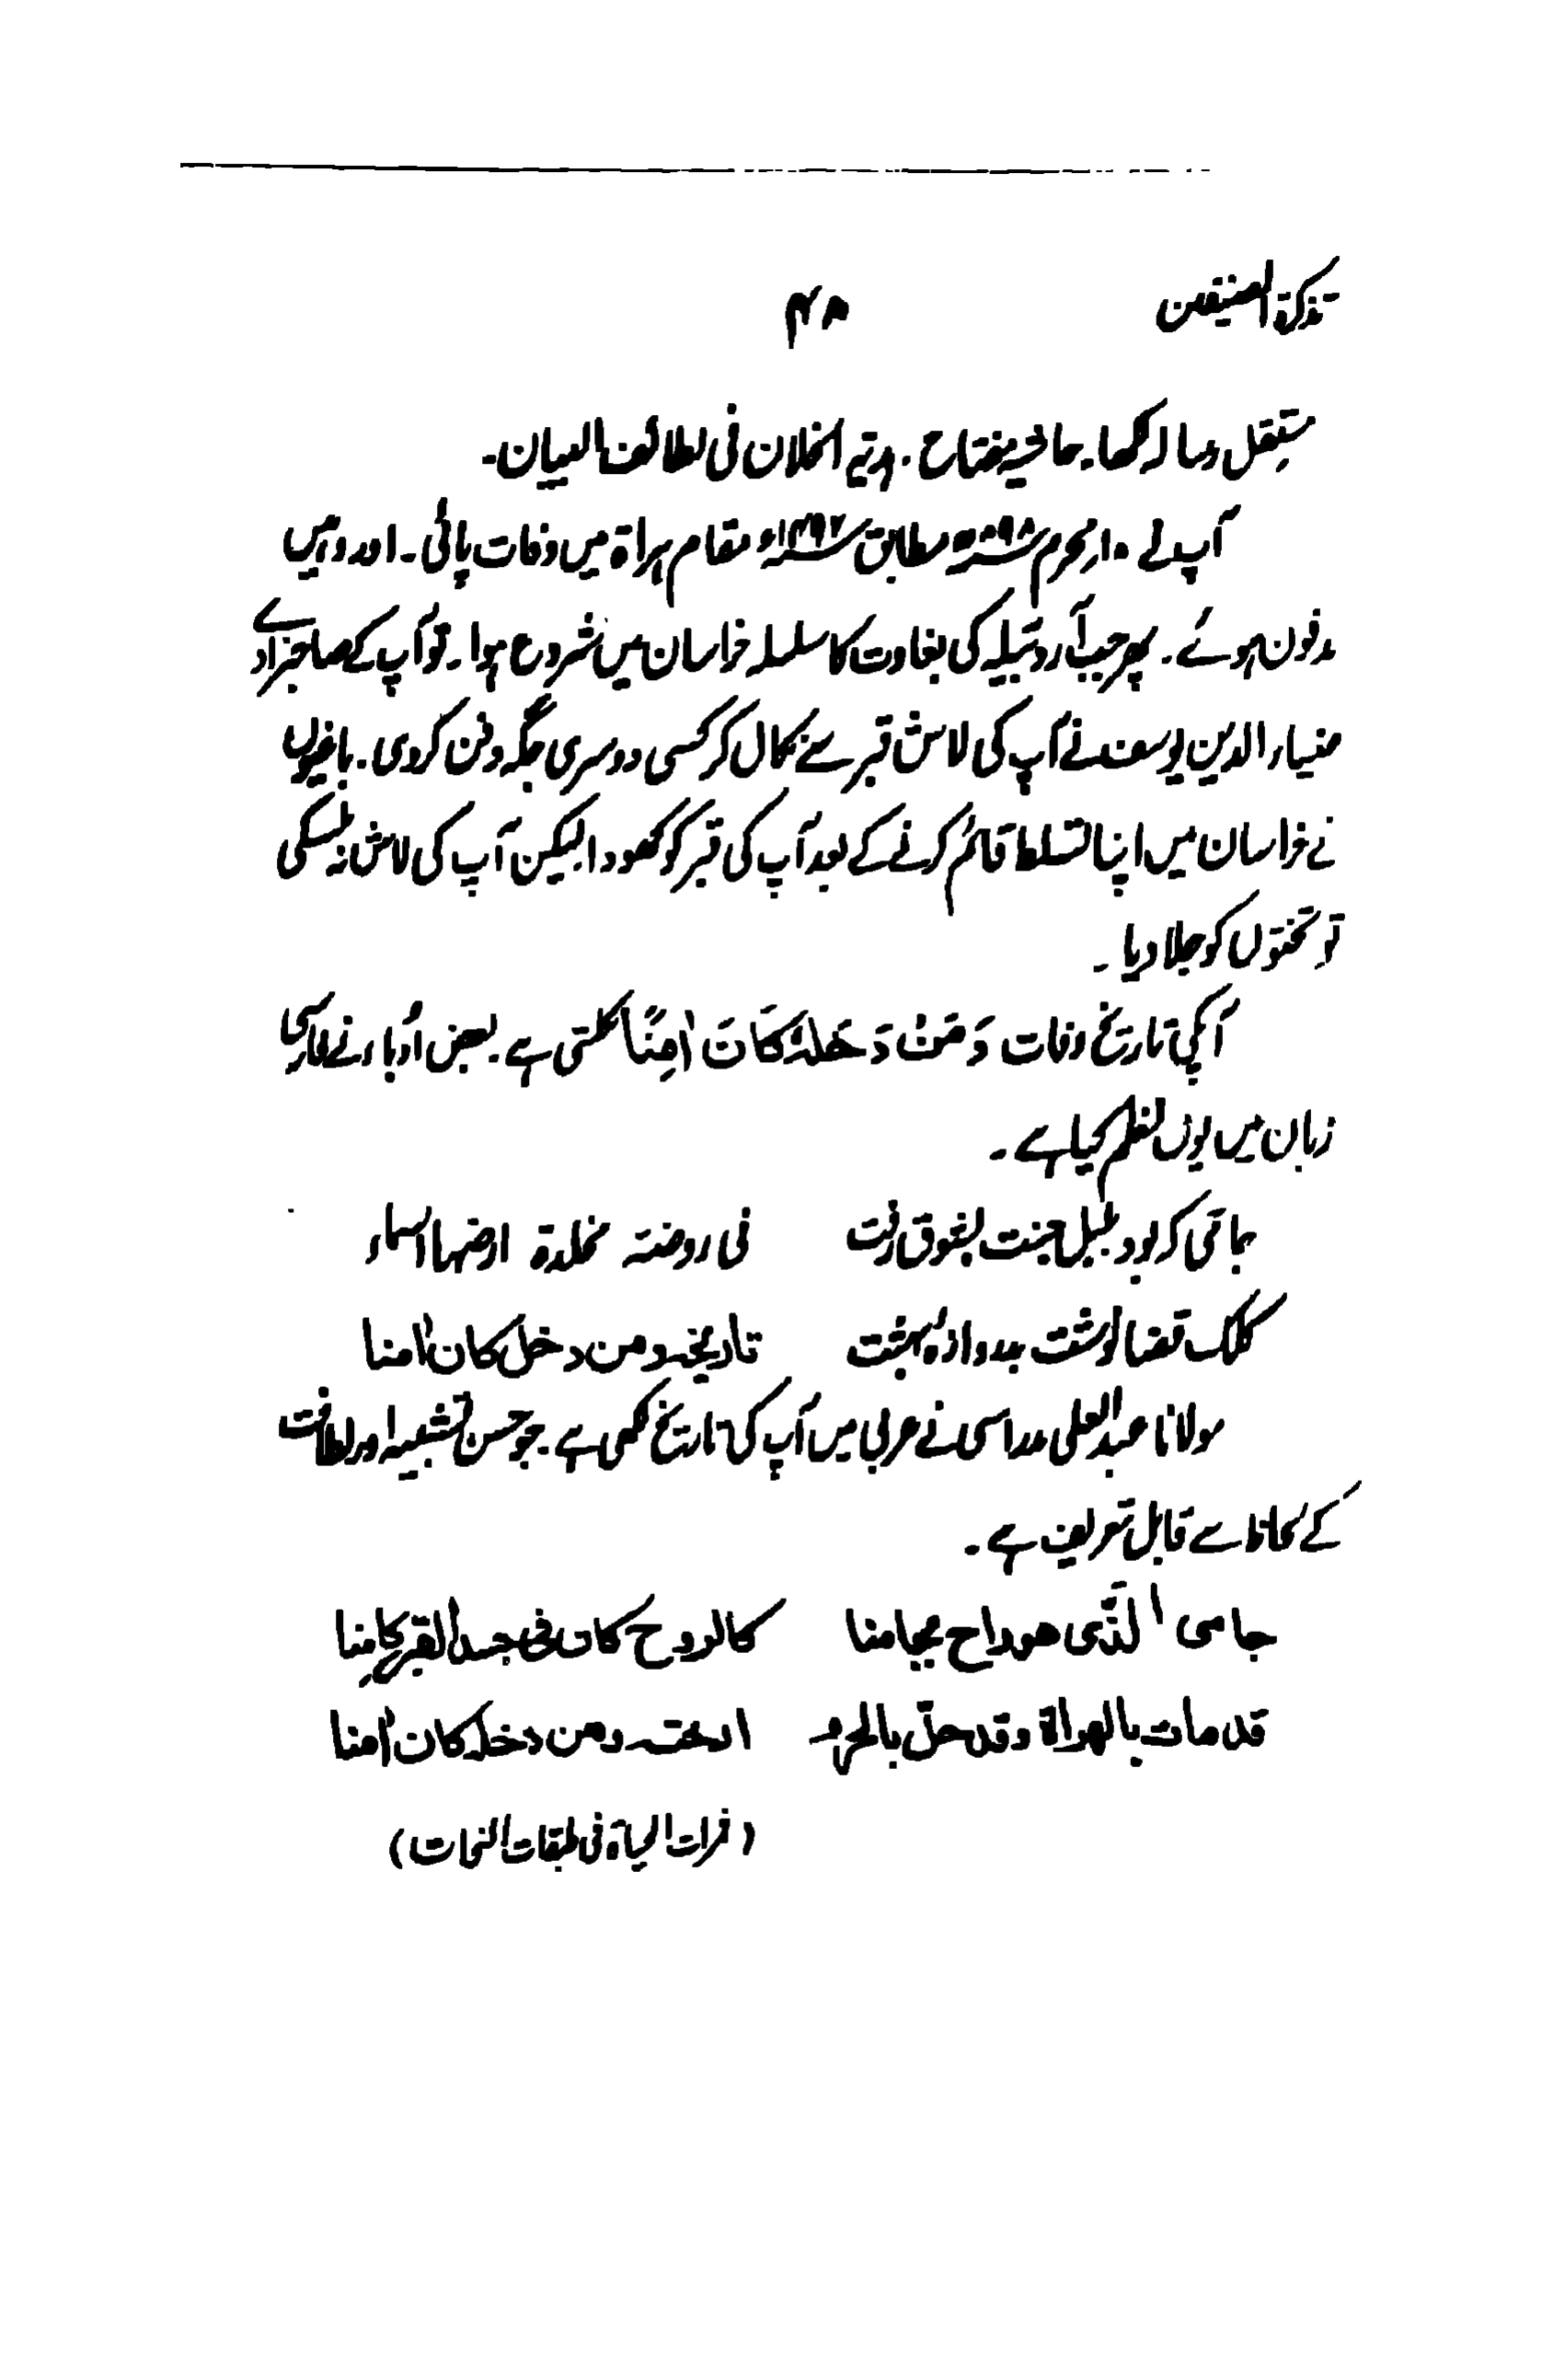 تذکرۃ المصنفین
۴۸
مستقل رسالہ لکھا۔ حاشیہ مفتاح ۔ ہدیۃ الخلان فی لطائف البیان۔
آپ نے ۱۰ محرم ۸۹۸ھ مطابق ۱۴۹۲ء مقام ہراۃ میں وفات پائی۔ اور وہیں
مدفون ہوئے۔ پھر جب آردبیلہ کی بغاوت کا سلسلہ خراسان میں شروع ہوا۔ تو آپ کے صاحبزادے
ضیاء الدین یوسف نے آپ کی لاش قبر سے نکال کر کسی دوسری جگہ دفن کر دی۔ باغیوں
نے خراسان میں اپنا تسلط قائم کرنے کے بعد آپ کی قبر کو کھودا لیکن آپ کی لاش نہ مل سکی
تو تختوں کو جلا دیا۔
آپکی تاریخ وفات وَمَنْ دَخَلَہٗ کَانَ اٰمِنًا نکلتی ہے۔ بعض اُدباء نے فارسی
زبان میں یوں نظم کیا ہے۔
جامی کہ بود بلبل جنت بشوق رفت فی روضۃ مخلدۃ ارضہا السماء
کلک قضا نوشت بدروازہ بہشت تاریخہ ومن دخلہ کان اٰمنا
مولانا عبدالعلی مدراسی نے عربی میں آپ کی تاریخ لکھی ہے۔ جو حسن تشبیہ اور لطافت
کے لحاظ سے قابل تعریف ہے۔
جامی الّذی ھو راح بجامنا کالروح کان فی جسد القبر کامِنا
قد مات بالھراۃ وقد حلّ بالحرم ارختہ ومن دخلہ کان اٰمنا
(فرات الحیاۃ فی طبقات النحات)